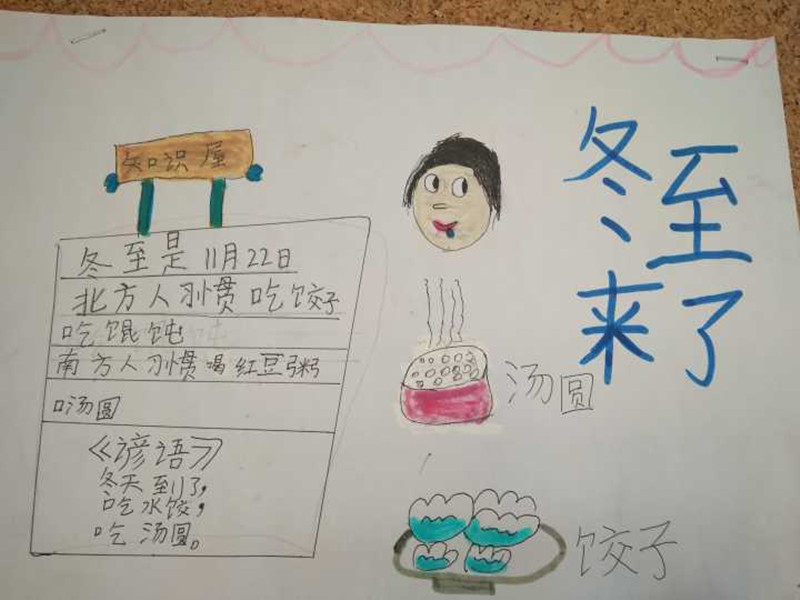 冬至
来了
知识屋
冬至是11月22日
北方人习惯吃饺子
吃馄饨
南方人习惯喝红豆粥
汤圆
《谚语》
冬天到了,
吃水饺,
吃汤圆。
汤圆
饺子